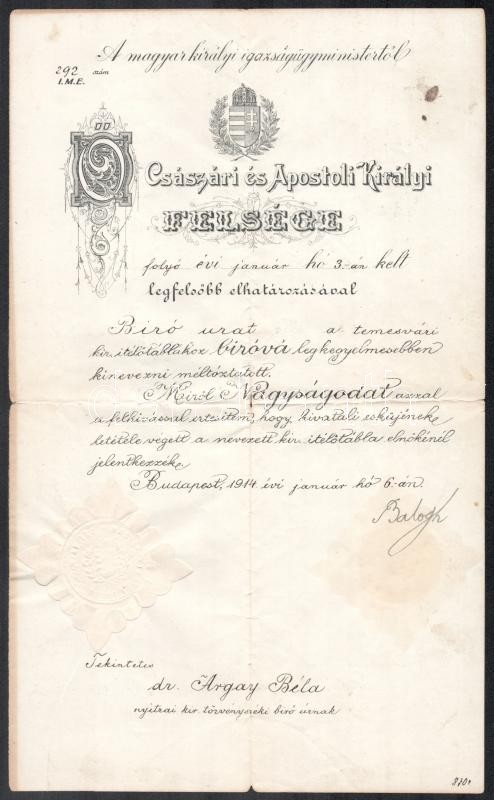 A magyar királyi igazságügyministertől
292 szám
I.M.E.
Ő
Császári és Apostoli Királyi
FELSÉGE
folyó évi január hó 3-án kelt
legfelsőbb elhatározásával
Biró urat a temesvári
kir. itélőtáblához biróvá legkegyelmesebben
kinevezni méltóztatott.
Miről Nagyságodat azzal
a felhivással értesitem, hogy hivatali esküjének
letétele végett a nevezett kir. itélőtábla elnökénél
jelentkezzék.
Budapest, 1914 évi január hó 6-án.
Balogh
Tekintetes
dr. Árgay Béla
nyitrai kir. törvényszéki biró úrnak